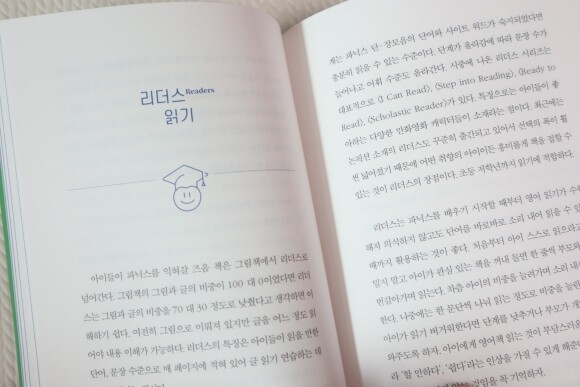 리더스 Readers
읽기
아이들이 파닉스를 익혀갈 즈음 책은 그림책에서 리더스로
넘어간다. 그림책의 그림과 글의 비중이 100 대 0이었다면 리더
스는 그림과 글의 비중을 70 대 30 정도로 낮췄다고 생각하면 이
해하기 쉽다. 여전히 그림으로 이뤄져 있지만 글을 어느 정도 읽
어야 내용 이해가 가능하다. 리더스의 특징은 아이들이 읽을 만한
단어, 문장 수준으로 매 페이지에 적혀 있어 글 읽기 연습하는 데
게는 파닉스 단·장모음의 단어와 사이트 워드가 숙지되었다면
충분히 읽을 수 있는 수준이다. 단계가 올라감에 따라 문장 수가
늘어나고 어휘 수준도 올라간다. 시중에 나온 리더스 시리즈는
대표적으로 〈I Can Read〉, 〈Step into Reading〉, 〈Ready to
Read〉, 〈Scholastic Reader〉가 있다. 특징으로는 아이들이 좋
아하는 다양한 만화영화 캐릭터들이 소재라는 점이다. 최근에는
논픽션 소재의 리더스도 꾸준히 출간되고 있어서 선택의 폭이 훨
씬 넓어졌기 때문에 어떤 취향의 아이이든 흥미롭게 책을 접할 수
있는 것이 리더스의 장점이다. 초등 저학년까지 읽기에 적합하다.
리더스는 파닉스를 배우기 시작할 때부터 영어 읽기가 수
해져 의식하지 않고도 단어를 바로바로 소리 내어 읽을 수 있
때까지 활용하는 것이 좋다. 처음부터 아이 스스로 읽으라고
밀지 말고 아이가 관심 있는 책을 꺼내 들면 한 줄씩 부모와
번갈아가며 읽는다. 차츰 아이의 비중을 늘려가며 소리 내
한다. 나중에는 한 문단씩 나눠 읽는 정도로 비중을 늘린
아이가 읽기 버거워한다면 단계를 낮추거나 부모가 개
와주도록 하자. 아이에게 영어책 읽는 것이 부담스러운
라 '할 만하다', '쉽다'라는 인상을 가질 수 있게 해준
있는 것임을 꼭 기억하자.